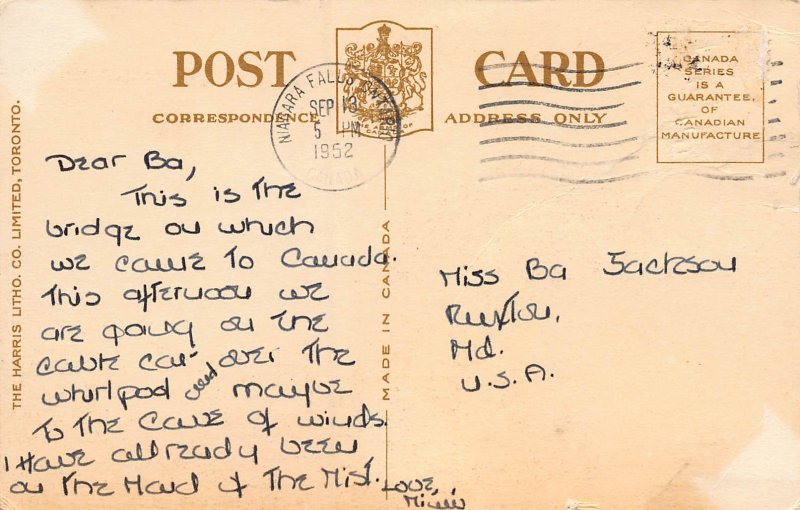 POST CARD
CORRESPONDENCE ADDRESS ONLY
NIAGARA FALLS ONTARIO
SEP 13
5 PM
1952
CANADA
CANADA
SERIES
IS A
GUARANTEE
OF
CANADIAN
MANUFACTURE
THE HARRIS LITHO. CO. LIMITED, TORONTO.
MADE IN CANADA
Dear Ba,
This is the
bridge on which
we came to Canada.
This afternoon we
are going on the
cable car over the
whirlpool and maybe
to the Cave of Winds.
I have allready been
on the Maid of the Mist.
Love,
Miss Ba Jackson
Ruxton,
Md.
U.S.A.